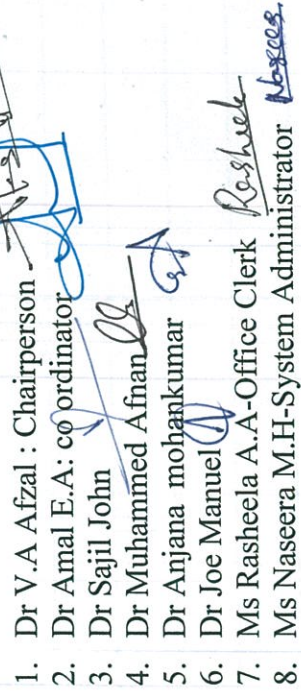 1. Dr V.A Afzal : Chairperson
2. Dr Amal E.A: co ordinator
3. Dr Sajil John
4. Dr Muhammed Afnan
5. Dr Anjana mohankumar
6. Dr Joe Manuel
7. Ms Rasheela A.A-Office Clerk Rasheela
8. Ms Naseera M.H-System Administrator Naseera